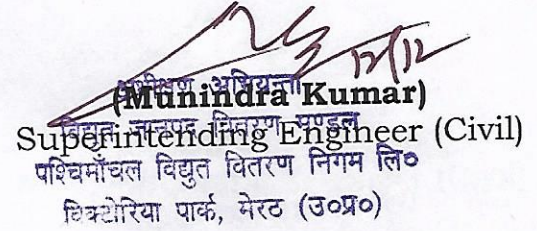 12/12
अधीक्षण अभियन्ता
(Munindra Kumar)
विद्युत जानपद वितरण मण्डल
Superintending Engineer (Civil)
पश्चिमाँचल विद्युत वितरण निगम लि०
विक्टोरिया पार्क, मेरठ (उ०प्र०)